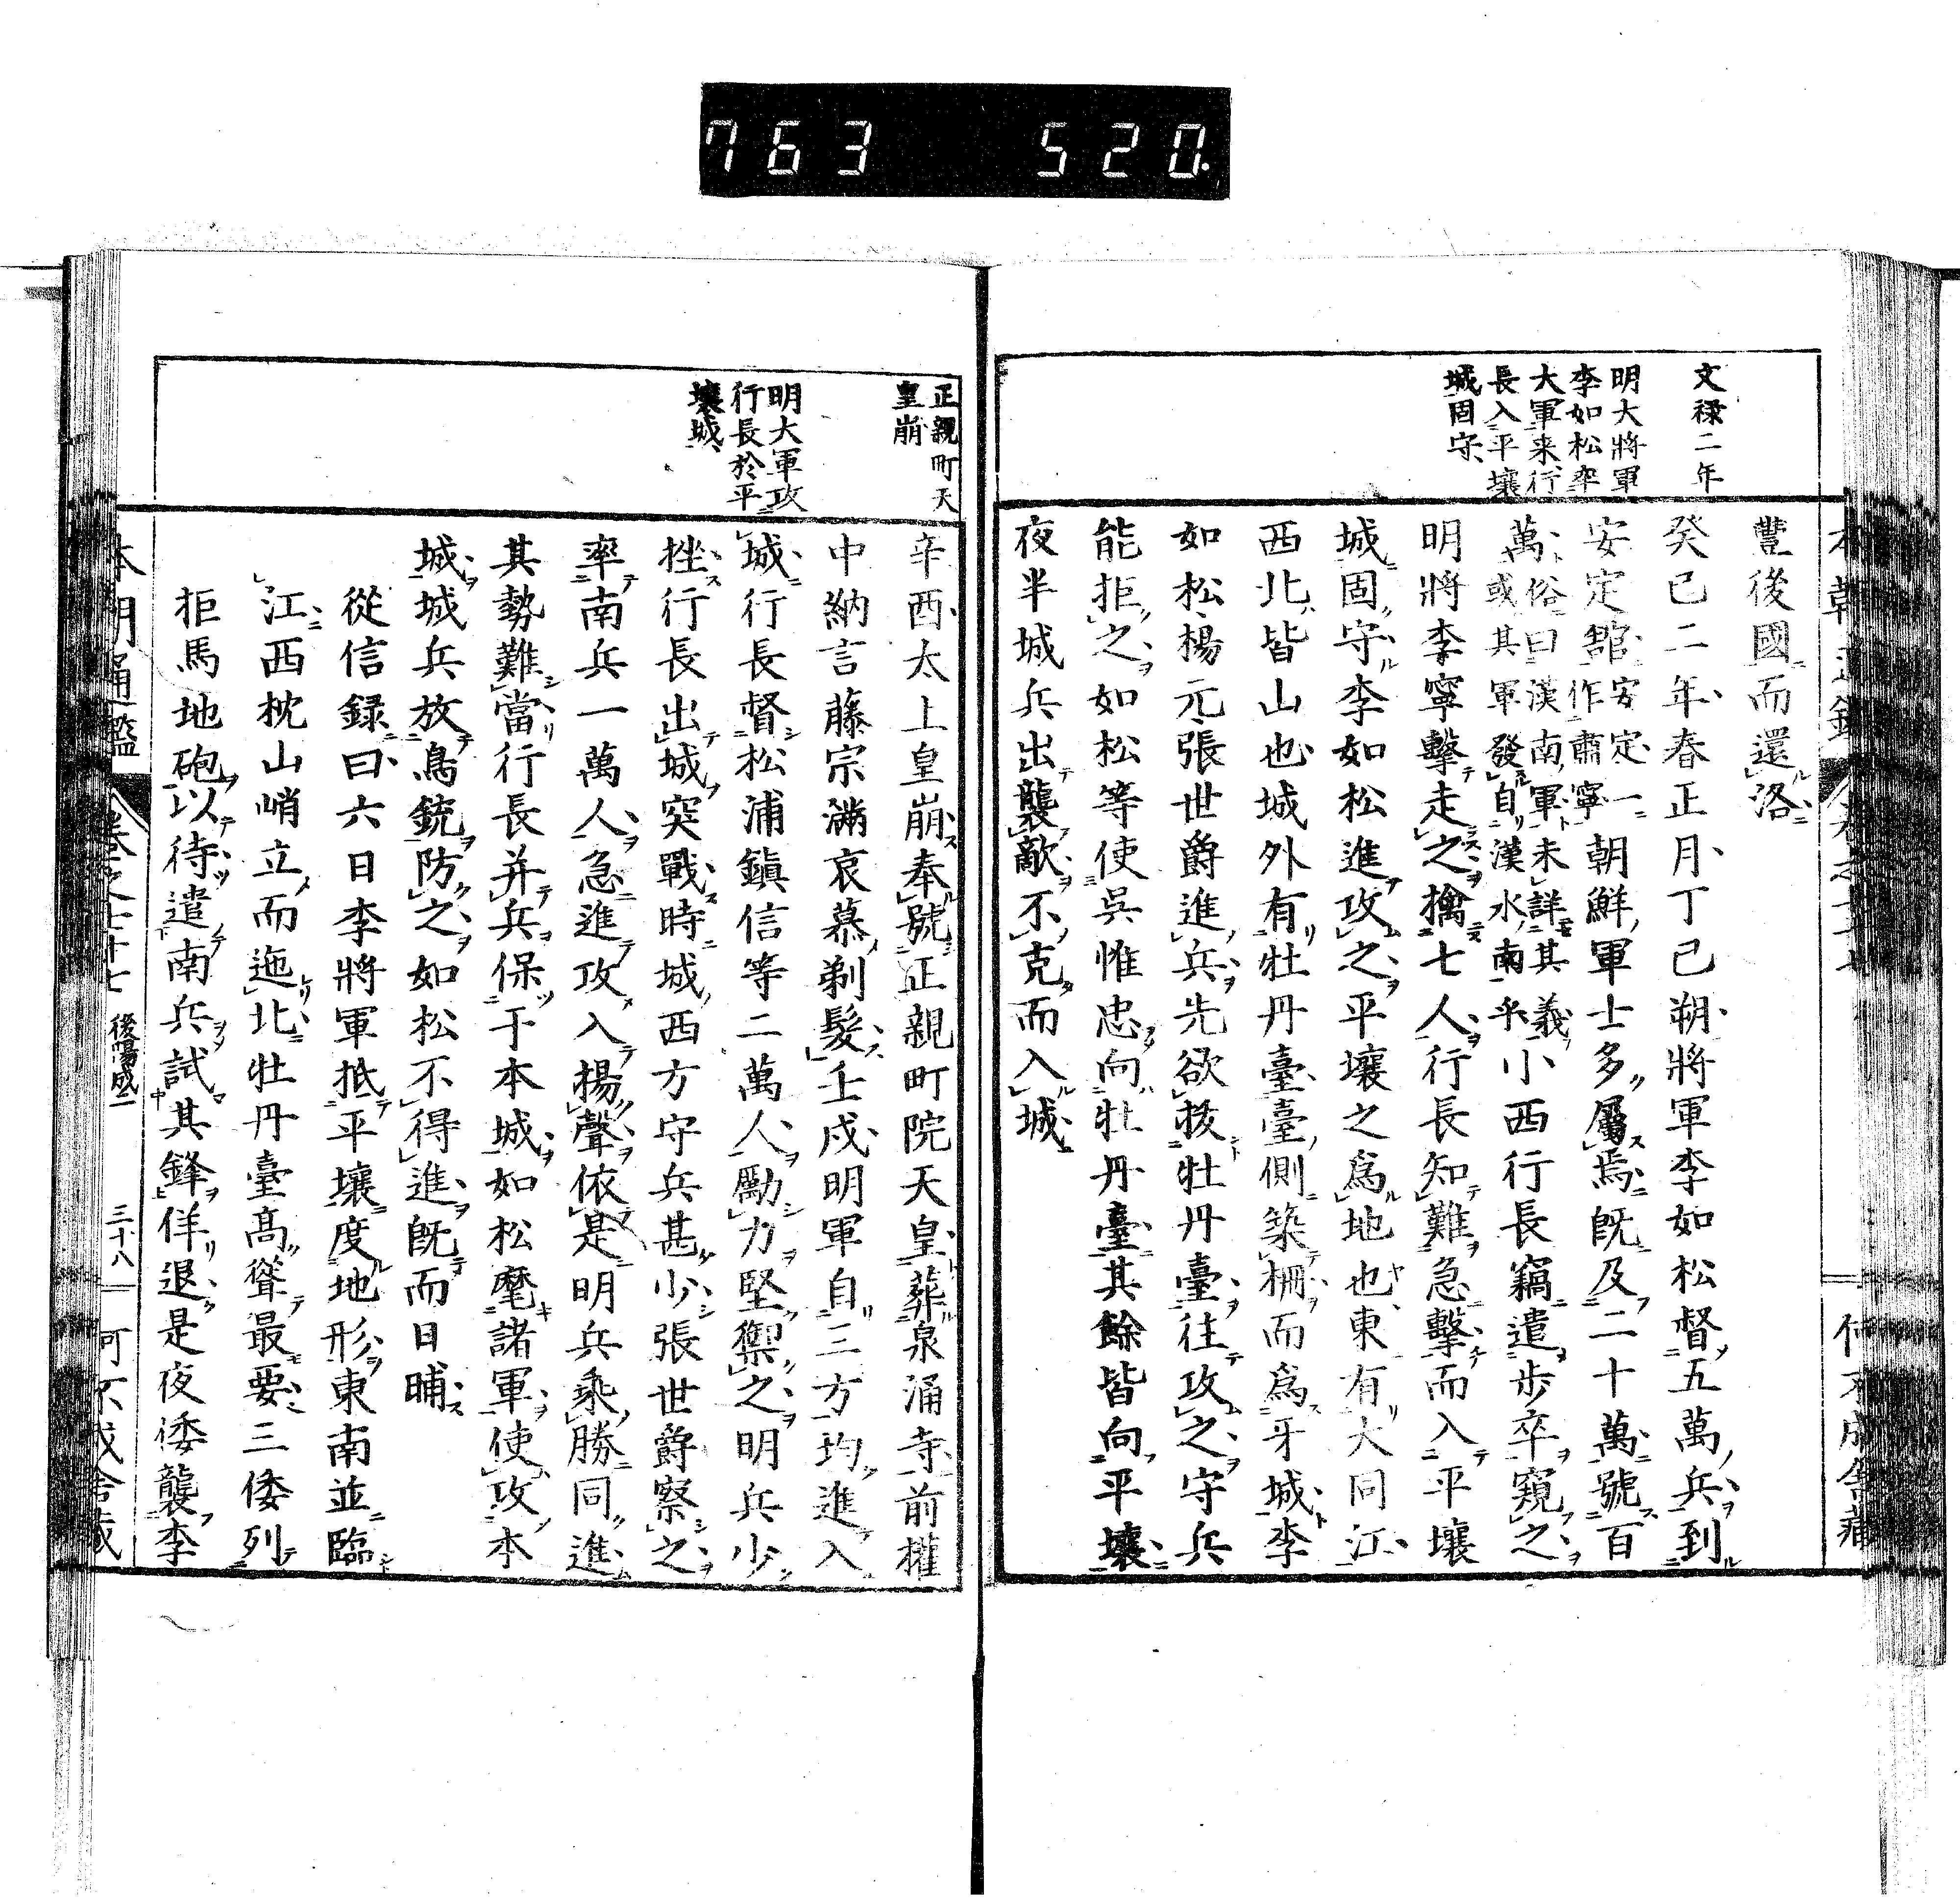 763 520.
文禄二年
明大將軍
李如松率
大軍来、行
長入平壤
城固守、
豐後國而還洛
癸巳二年春正月丁巳朔將軍李如松督五萬兵到
安定館安定一作肅寧朝鮮軍士多屬焉既及二十萬號百
萬俗曰漢南軍未詳其義或其軍發自漢水南乎小西行長竊遣歩卒窺之
明將李寧擊走之擒七人行長知難急擊而入平壤
城固守李如松進攻之平壤之爲地也東有大同江
西北皆山也城外有牡丹臺臺側築柵而爲牙城李
如松楊元張世爵進兵先欲拔牡丹臺往攻之守兵
能拒之如松等使吳惟忠向牡丹臺其餘皆向平壤
夜半城兵出襲敵不克而入城
正親町天
皇崩
明大軍攻
行長於平
壤城
辛酉太上皇崩奉號正親町院天皇葬泉涌寺前權
中納言藤宗滿哀慕剃髮壬戌明軍自三方均進入
城行長督松浦鎮信等二萬人勵力堅禦之明兵少
挫行長出城突戰時城西方守兵甚少張世爵察之
率南兵一萬人急進攻入揚聲依是明兵乘勝同進
其勢難當行長并兵保于本城如松麾諸軍使攻本
城城兵放鳥銃防之如松不得進既而日晡
從信録曰六日李將軍抵平壤度地形東南並臨
江西枕山峭立而迤北牡丹臺髙聳最要三倭列
拒馬地砲以待遣南兵試其鋒佯退是夜倭襲李
後陽成二
三十八